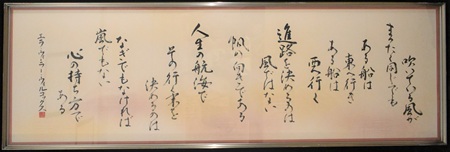 吹いている風が
まったく同じでも
ある船は
東へ行き
ある船は
西へ行く
進路を決めるのは
風ではない
帆の向きである
人生の航海で
その行く末を
決めるのは
なぎでもなければ
嵐でもない
心の持ち方で
ある
エラ・ウィーラー・ウィルコックス